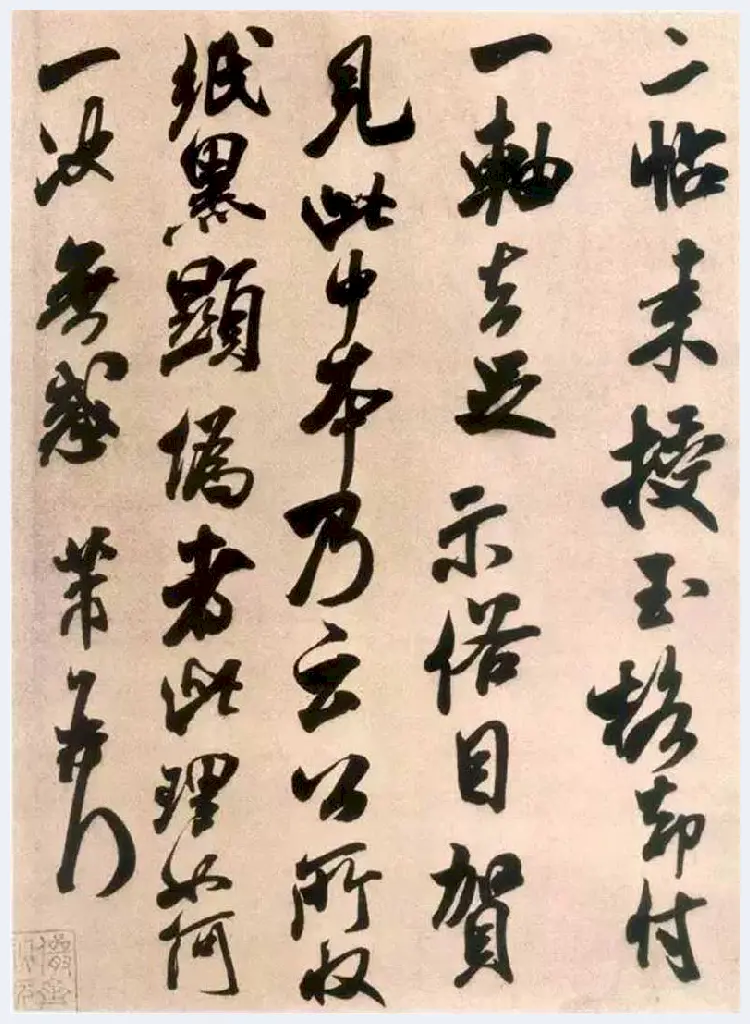 二帖来授玉格却付
一軸去足示俗目賀
見此中本乃云公所收
紙黑顯僞者此理如何
一决無惑 芾